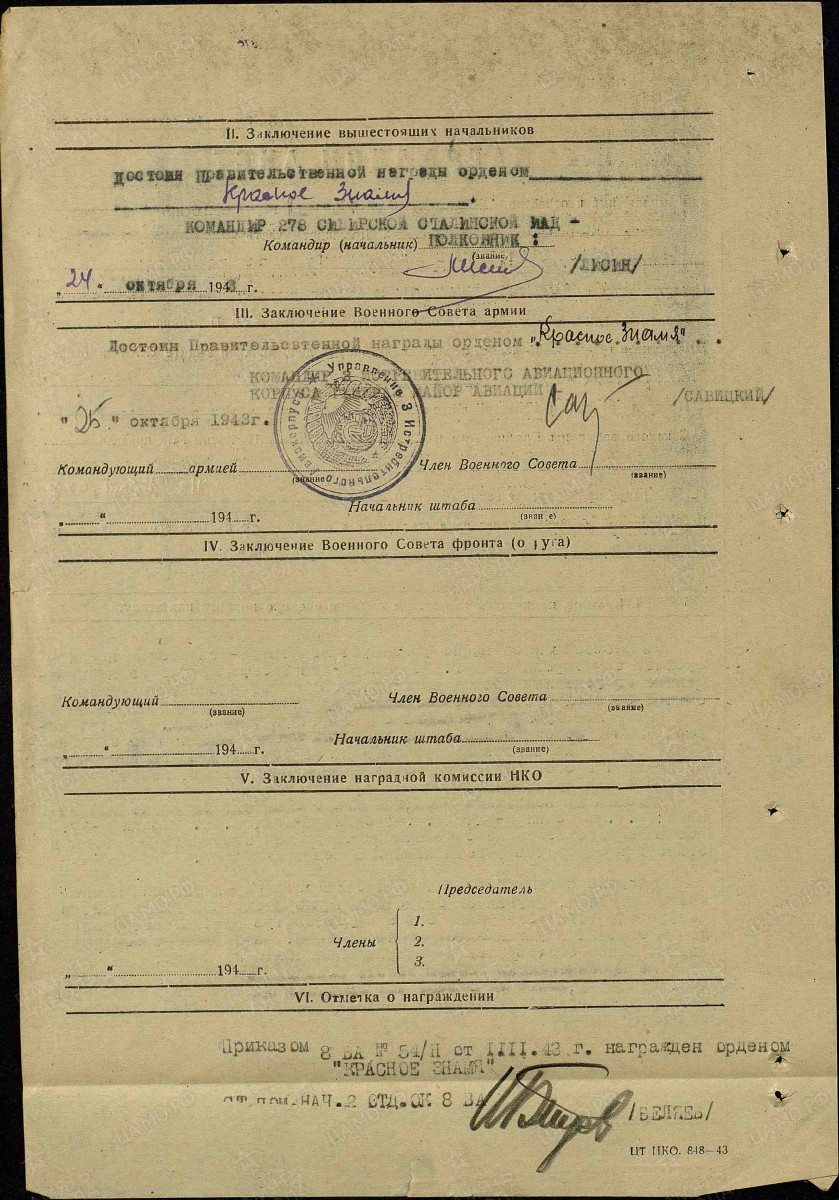 II. Заключение вышестоящих начальников
Достоин Правительственной награды орденом
Красное Знамя.
КОМАНДИР 278 СИБИРСКОЙ СТАЛИНСКОЙ ИАД -
Командир (начальник) ПОЛКОВНИК :
(звание)
/ЛИСИН/
„24" октября 1943 г.
III. Заключение Военного Совета армии
Достоин Правительсвтенной награды орденом „Красное Знамя"
КОМАНДИР 3 ИСТРЕБИТЕЛЬНОГО АВИАЦИОННОГО
КОРПУСА МАЙОР АВИАЦИИ -
/САВИЦКИЙ/
"25" октября 1943г.
Управление 3 Истребительного Авиакорпуса
Командующий армией Член Военного Совета
(звание) (звание)
Начальник штаба
„ " 194 г. (звание)
IV. Заключение Военного Совета фронта (о руга)
Командующий Член Военного Совета
(звание) (звание)
Начальник штаба
„ " 194 г. (звание)
V. Заключение наградной комиссии НКО
Председатель
1.
Члены 2.
3.
„ " 194 г.
VI. Отметка о награждении
Приказом 8 ВА № 54/Н от 1.III.43 г. награжден орденом
"КРАСНОЕ ЗНАМЯ"
СТ.ПОМ.НАЧ.2 ОТД.ОК 8 ВА
/БЕЛЯЕВ/
ЦТ НКО. 848—43